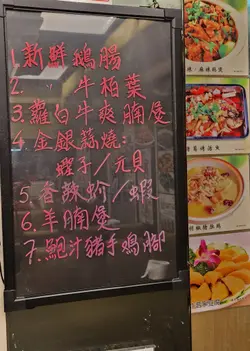 1.新鮮鵝腸
2. 〃 牛柏葉
3.蘿白牛爽腩煲
4.金銀蒜燒:
蟶子/元貝
5.香辣蚧/蝦
6.羊腩煲
7.鮑汁豬手鳴腳